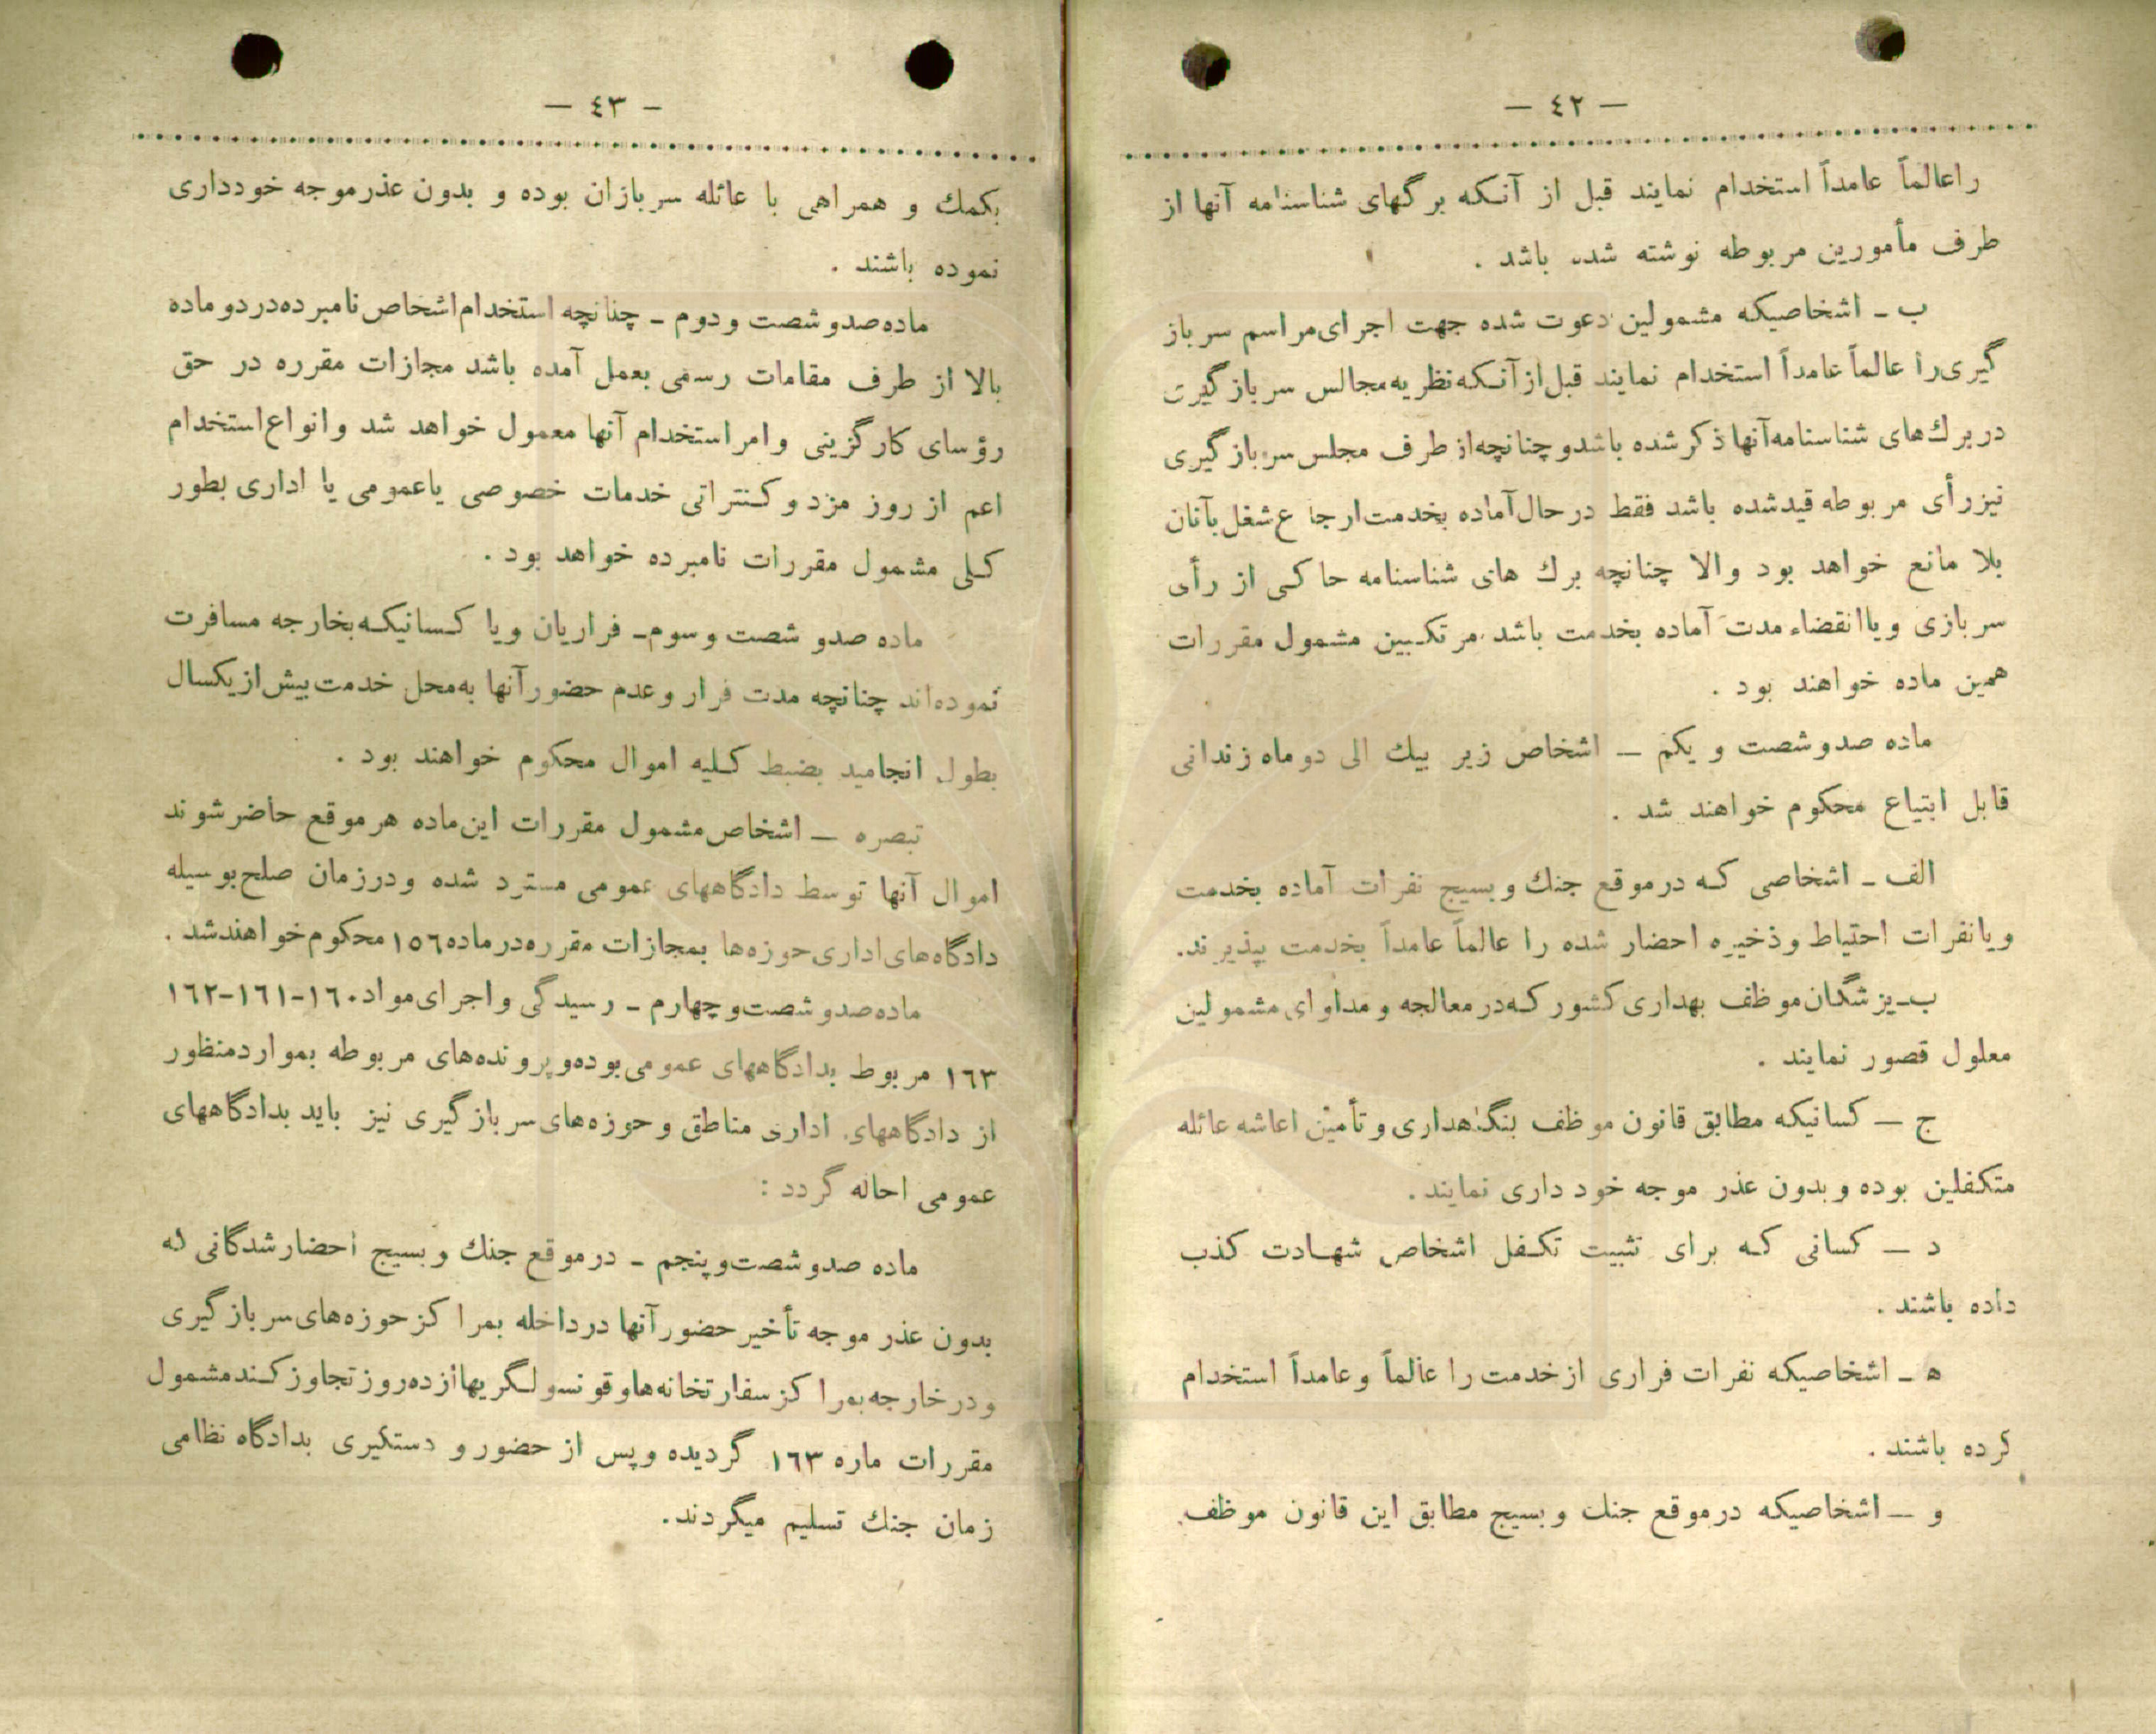 — ٤٢ —
را عالماً عامداً استخدام نمایند قبل از آنکه برگهای شناسنامه آنها از
طرف مأمورین مربوطه نوشته شده باشد .
ب ـ اشخاصیکه مشمولین دعوت شده جهت اجرای مراسم سرباز
گیری را عالماً عامداً استخدام نمایند قبل از آنکه نظریه مجالس سربازگیری
در برك های شناسنامه آنها ذکر شده باشد و چنانچه از طرف مجلس سربازگیری
نیز رأی مربوطه قید شده باشد فقط در حال آماده بخدمت ارجاع شغل بآنان
بلا مانع خواهد بود والا چنانچه برك های شناسنامه حاکی از رأی
سربازی و یا انقضاء مدت آماده بخدمت باشد مرتکبین مشمول مقررات
همین ماده خواهند بود .
ماده صد و شصت و یکم — اشخاص زیر بیك الی دو ماه زندانی
قابل ابتیاع محکوم خواهند شد .
الف ـ اشخاصی که در موقع جنك و بسیج نفرات آماده بخدمت
و یا نفرات احتیاط و ذخیره احضار شده را عالماً عامداً بخدمت بپذیرند.
ب ـ پزشگان موظف بهداری کشور که در معالجه و مداوای مشمولین
معلول قصور نمایند .
ج — کسانیکه مطابق قانون موظف بنگاهداری و تأمین اعاشه عائله
متکفلین بوده و بدون عذر موجه خود داری نمایند .
د — کسانی که برای تثبیت تکفل اشخاص شهادت کذب
داده باشند .
ه ـ اشخاصیکه نفرات فراری از خدمت را عالماً و عامداً استخدام
کرده باشند .
و — اشخاصیکه در موقع جنك و بسیج مطابق این قانون موظف
— ٤٣ —
بکمك و همراهی با عائله سربازان بوده و بدون عذر موجه خودداری
نموده باشند .
ماده صد و شصت و دوم ـ چنانچه استخدام اشخاص نامبرده در دو ماده
بالا از طرف مقامات رسمی بعمل آمده باشد مجازات مقرره در حق
رؤسای کارگزینی و امر استخدام آنها معمول خواهد شد و انواع استخدام
اعم از روز مزد و کنتراتی خدمات خصوصی یا عمومی یا اداری بطور
کلی مشمول مقررات نامبرده خواهد بود .
ماده صد و شصت و سوم ـ فراریان و یا کسانیکه بخارجه مسافرت
نموده‌اند چنانچه مدت فرار و عدم حضور آنها به محل خدمت بیش از یکسال
بطول انجامید بضبط کلیه اموال محکوم خواهند بود .
تبصره — اشخاص مشمول مقررات این ماده هر موقع حاضر شوند
اموال آنها توسط دادگاههای عمومی مسترد شده و در زمان صلح بوسیله
دادگاه های اداری حوزه ها بمجازات مقرره در ماده ١٥٦ محکوم خواهند شد .
ماده صد و شصت و چهارم ـ رسیدگی و اجرای مواد ١٦٠-١٦١-١٦٢
١٦٣ مربوط بدادگاههای عمومی بوده و پرونده های مربوطه بموارد منظور
از دادگاههای اداری مناطق و حوزه های سربازگیری نیز باید بدادگاههای
عمومی احاله گردد :
ماده صد و شصت و پنجم ـ در موقع جنك و بسیج احضار شدگانی که
بدون عذر موجه تأخیر حضور آنها در داخله بمراکز حوزه های سربازگیری
و در خارجه بمراکز سفارتخانه ها و قونسولگریها از ده روز تجاوز کند مشمول
مقررات ماره ١٦٣ گردیده و پس از حضور و دستگیری بدادگاه نظامی
زمان جنك تسلیم میگردند .